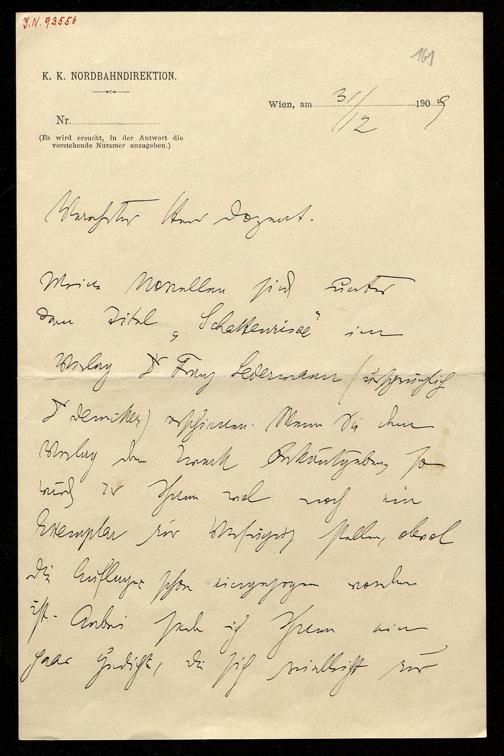 J.N. 93556
161
K. K. NORDBAHNDIREKTION.
Wien, am 3/12 1909
Nr.
(Es wird ersucht, in der Antwort die
vorstehende Nummer anzugeben.)
Verehrter Herr Dozent.
Meine Novellen sind unter
dem Titel „Schattenrisse" im
Verlag Dr Franz Ledermann (ursprünglich
Dr Deutike) erschienen. Wenn Sie dem
Verlag den Zweck bekanntgeben, so
wird er Ihnen wol noch ein
Exemplar zur Verfügung stellen, obwol
die Auflage schon eingezogen worden
ist. Anbei sende ich Ihnen ein
paar Gedichte, die sich vielleicht zur